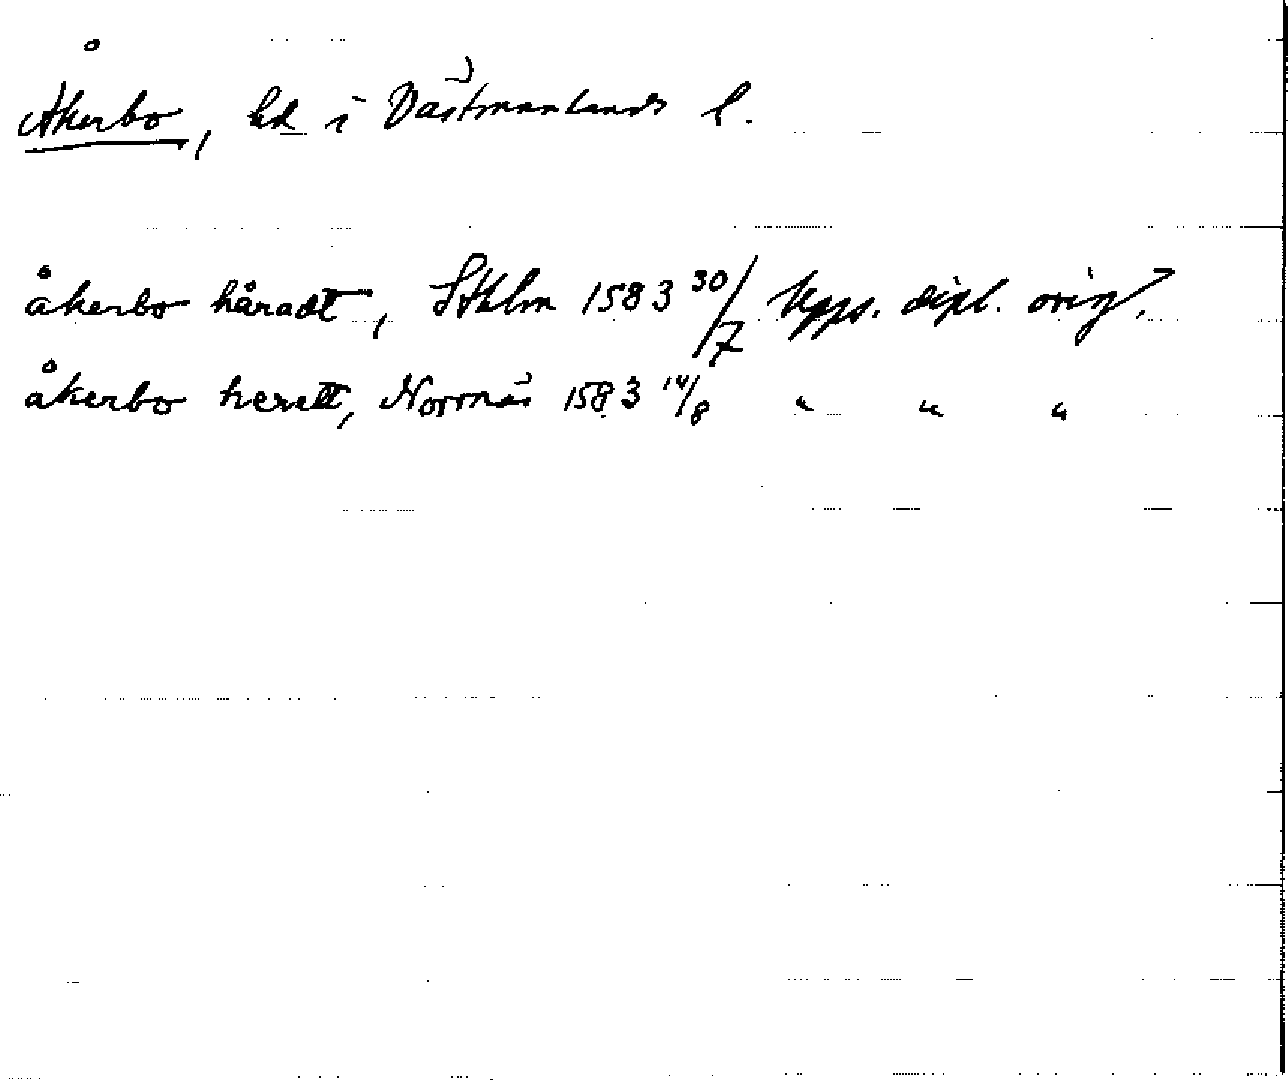 Åkerbo, hd i Västmanlands l.
åkerbo håradt, Sthlm 1583 30/7 Upps. dipl. orig.
åkerbo herett, Norrnäs 1583 14/8 " " "